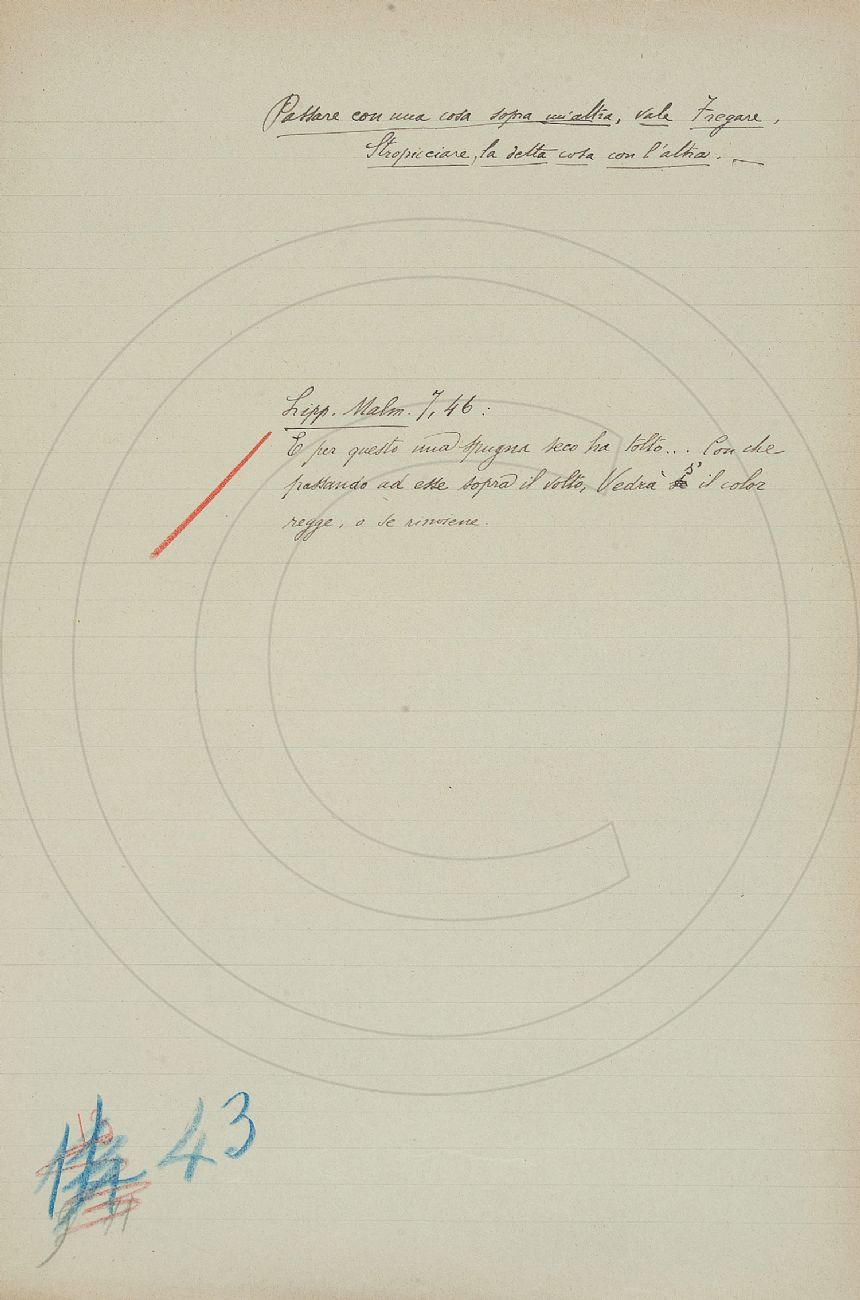 Passare con una cosa sopra un'altra, vale Fregare,
Stropicciare, la detta cosa con l'altra. —
Lipp. Malm. 7, 46:
E per questo una spugna seco ha tolto... Con che
passando ad esse sopra il volto, Vedrà s' il color
regge, o se rinviene.
43